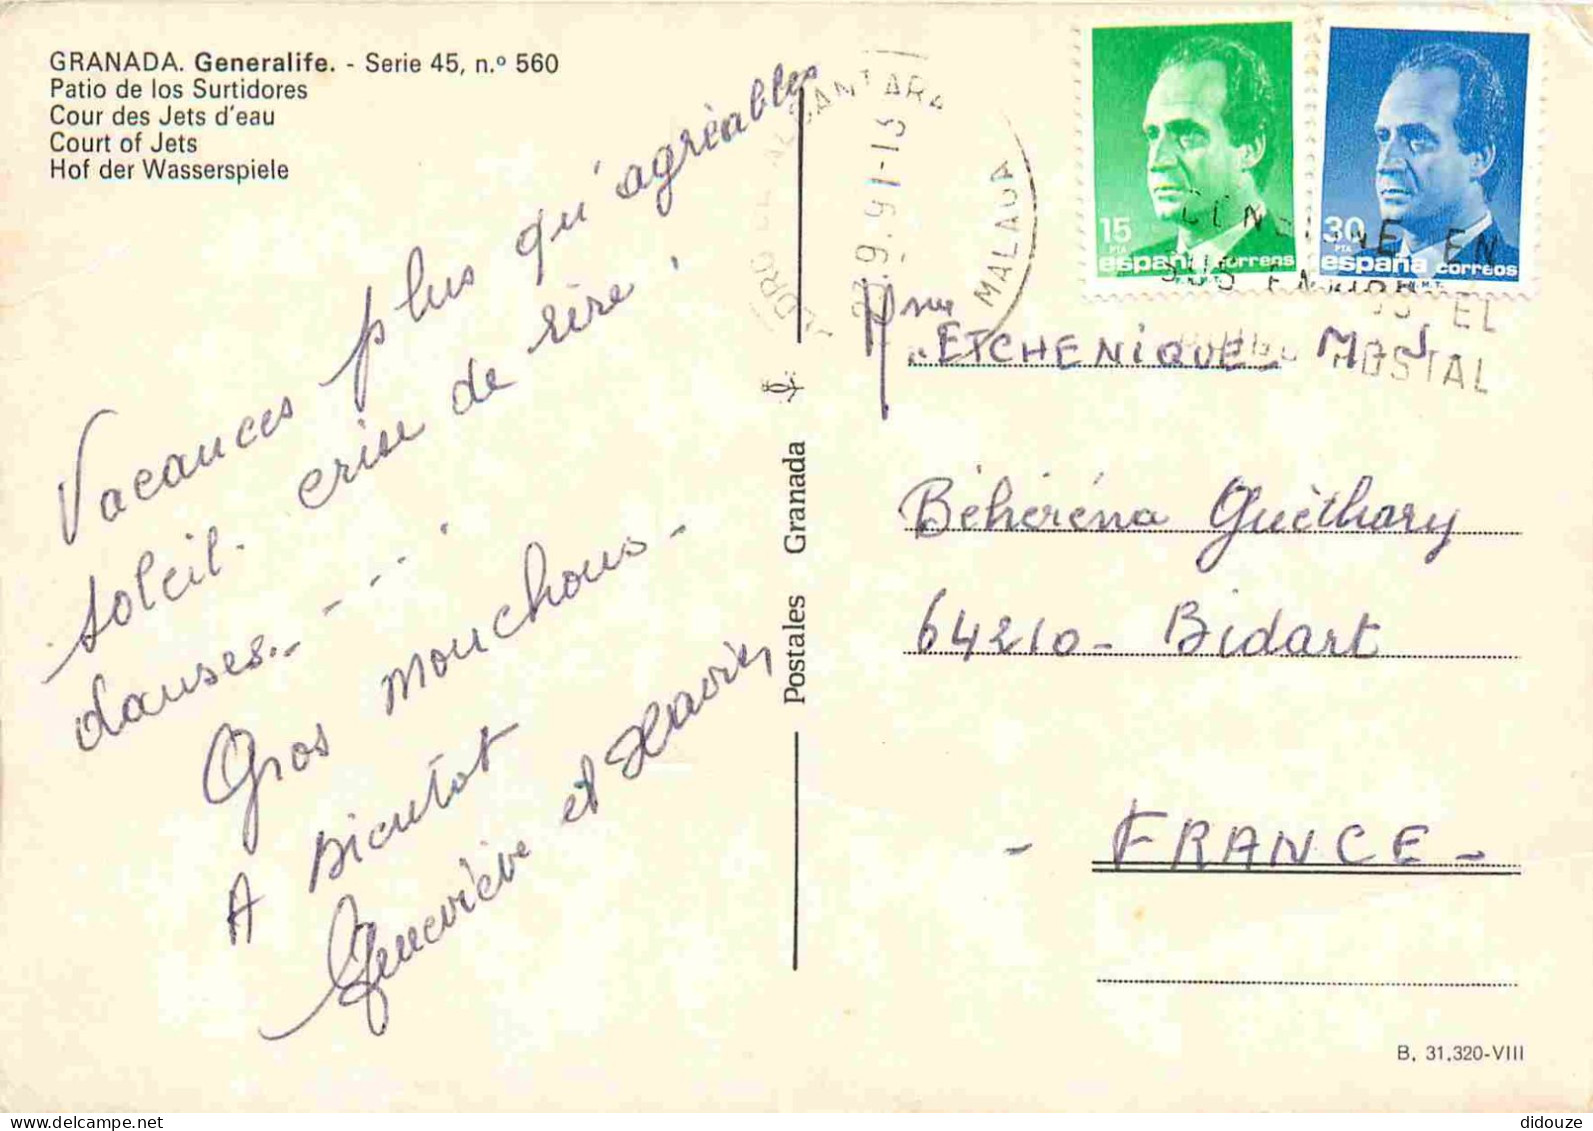 GRANADA. Generalife. - Serie 45, n.º 560
Patio de los Surtidores
Cour des Jets d'eau
Court of Jets
Hof der Wasserspiele
Vacances plus qu'agréables
soleil. crise de rire
danses..- - - ...
Gros mouchous -
A Bientot
Geneviève et Xavier
Postales Granada
ALCANTARA
23.9.91-13
MALAGA
15 PTA
españa correos
30 PTA
españa correos
F.N.M.T.
CONSIGNE EN
SUS ENVIOS EL
POSTAL
Mme
ETCHENIQUE M
Béhéréna Guèthary
64210- Bidart
- FRANCE -
B. 31.320-VIII
didouze